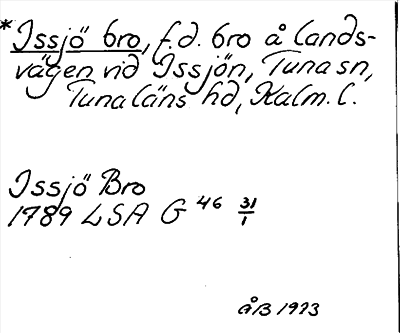 *Issjö bro, f.d. bro å lands-
vägen vid Issjön, Tuna sn,
Tuna läns hd, Kalm. l.
Issjö Bro
1789 LSA G 46 31/1
ÅB 1973